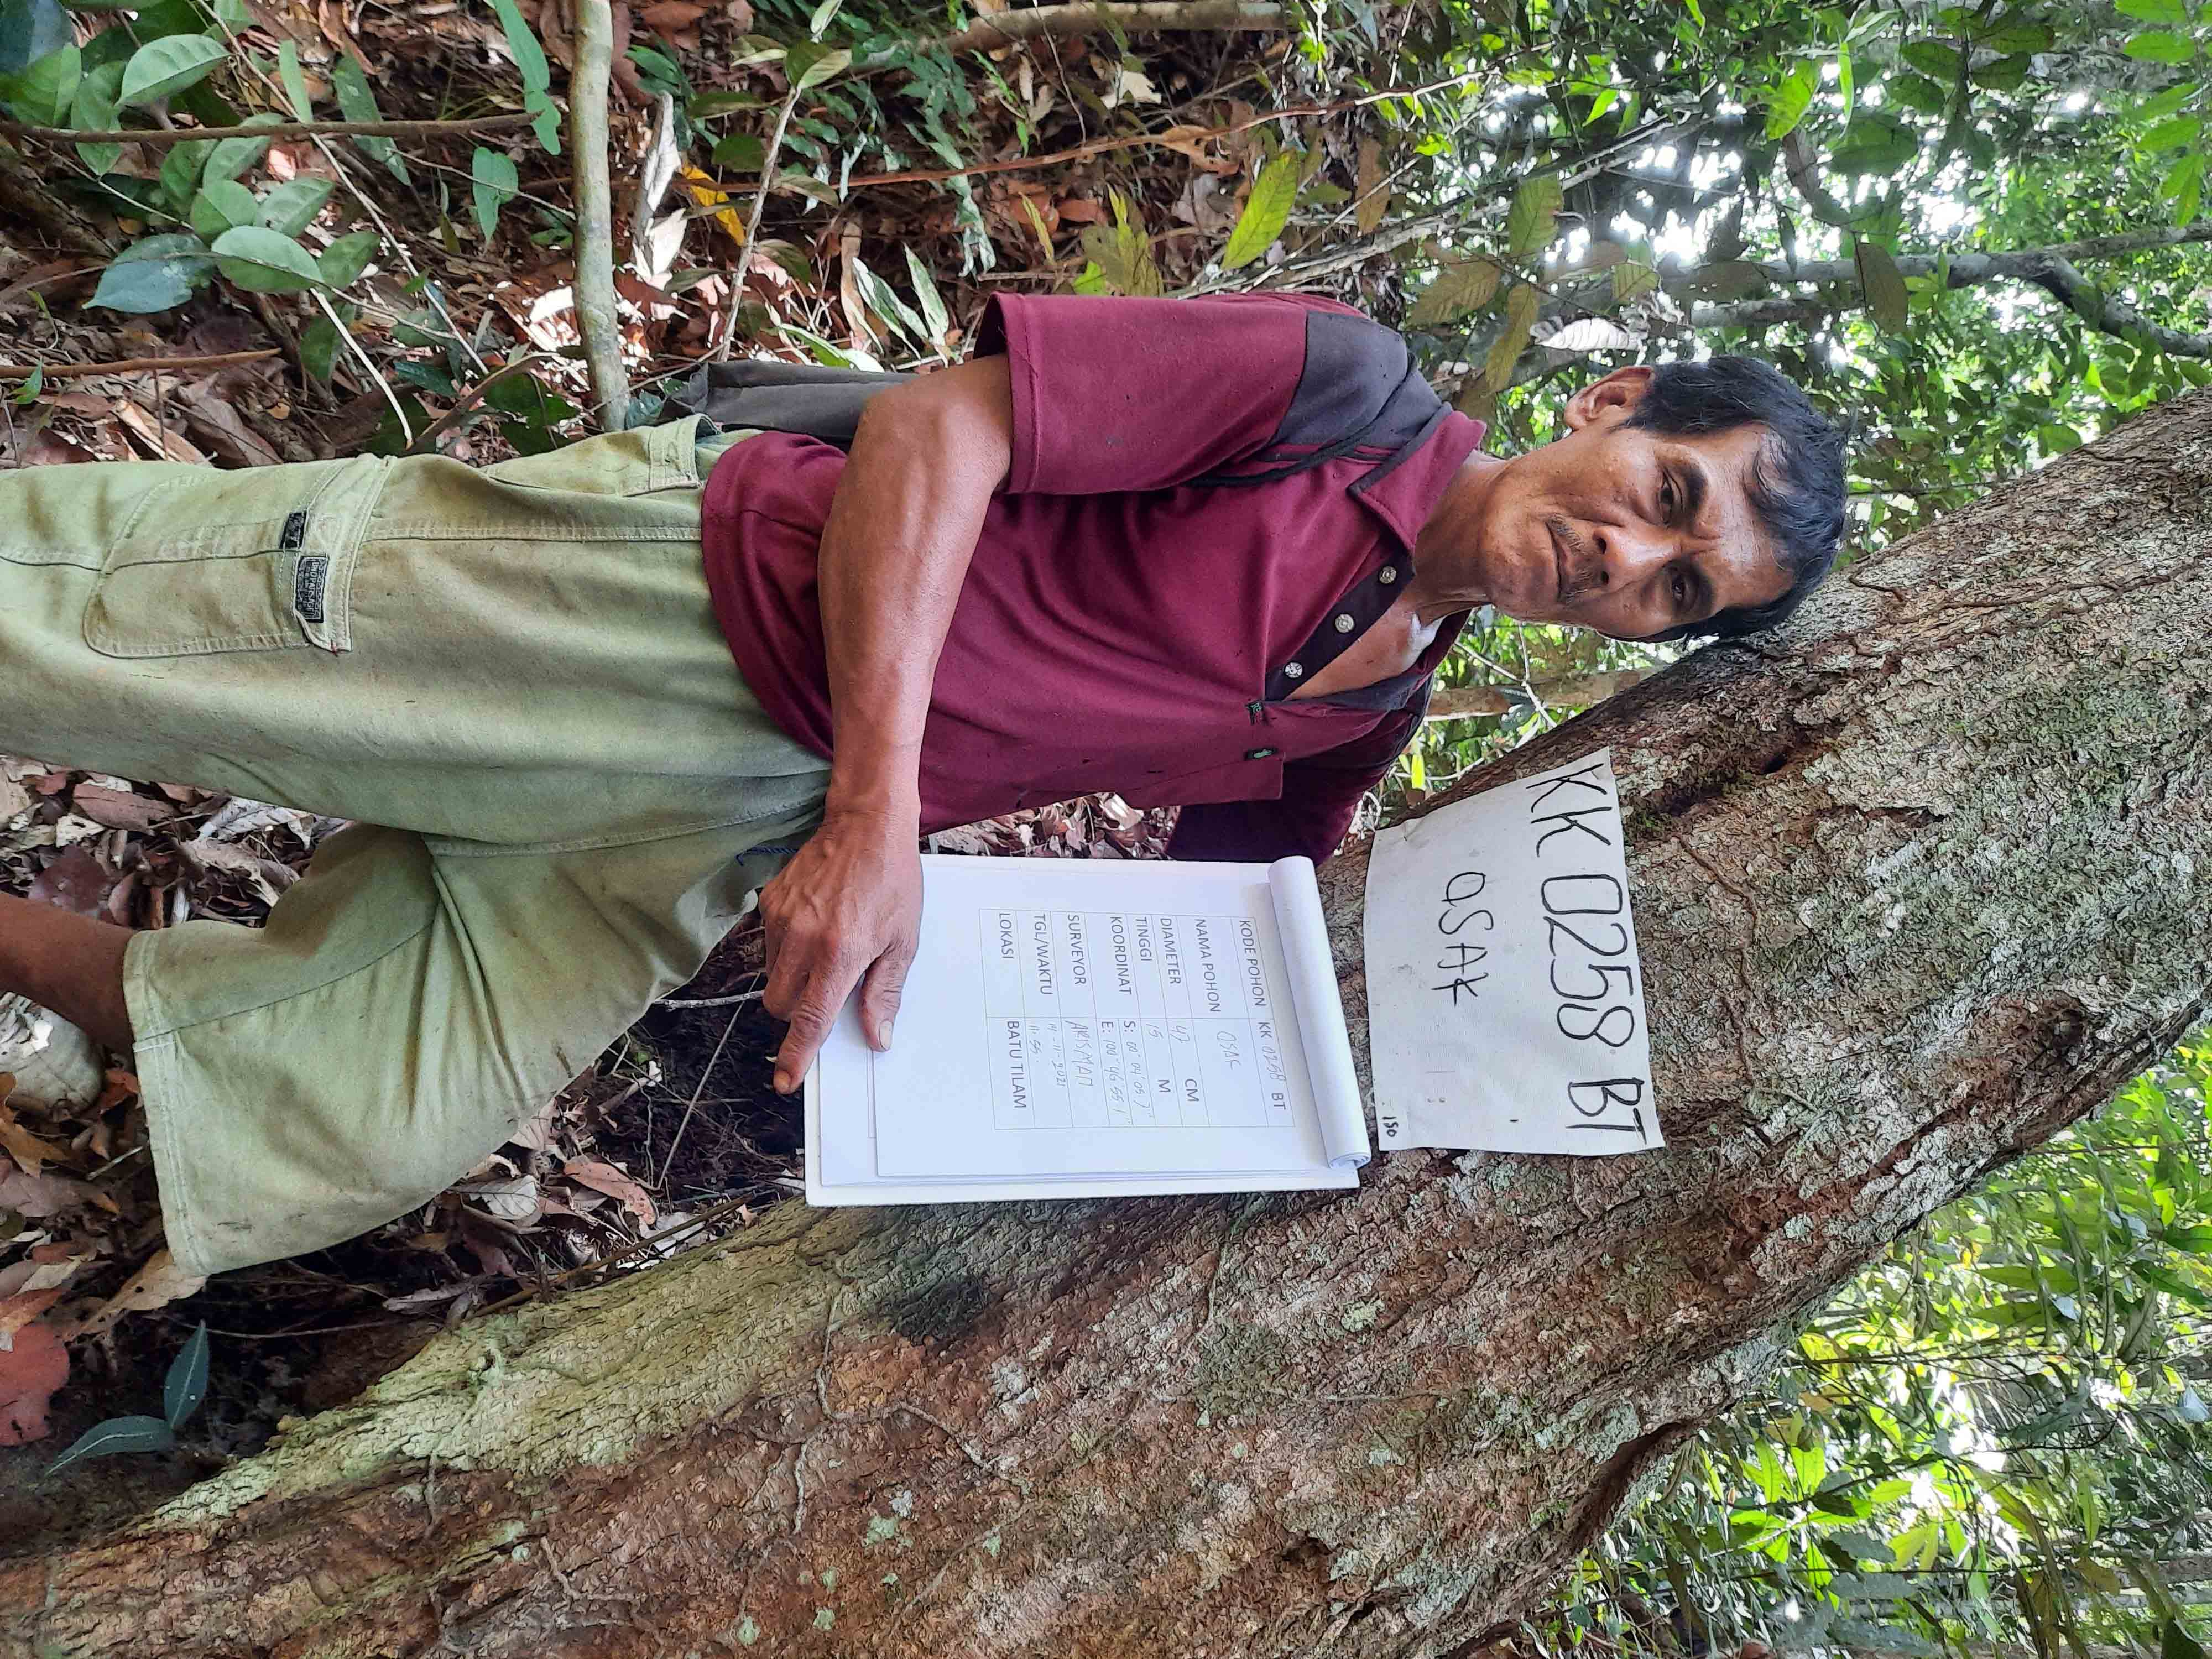 KK 0258 BT
OSAK
150
KODE POHON KK 0258 BT
NAMA POHON OSAK
DIAMETER 47 CM
TINGGI 15 M
KOORDINAT S: 00° 04' 05 7"
E: 100° 46' 55 1"
SURVEYOR ARISMAN
TGL/WAKTU 14-11-2021
11.55
LOKASI BATU TILAM